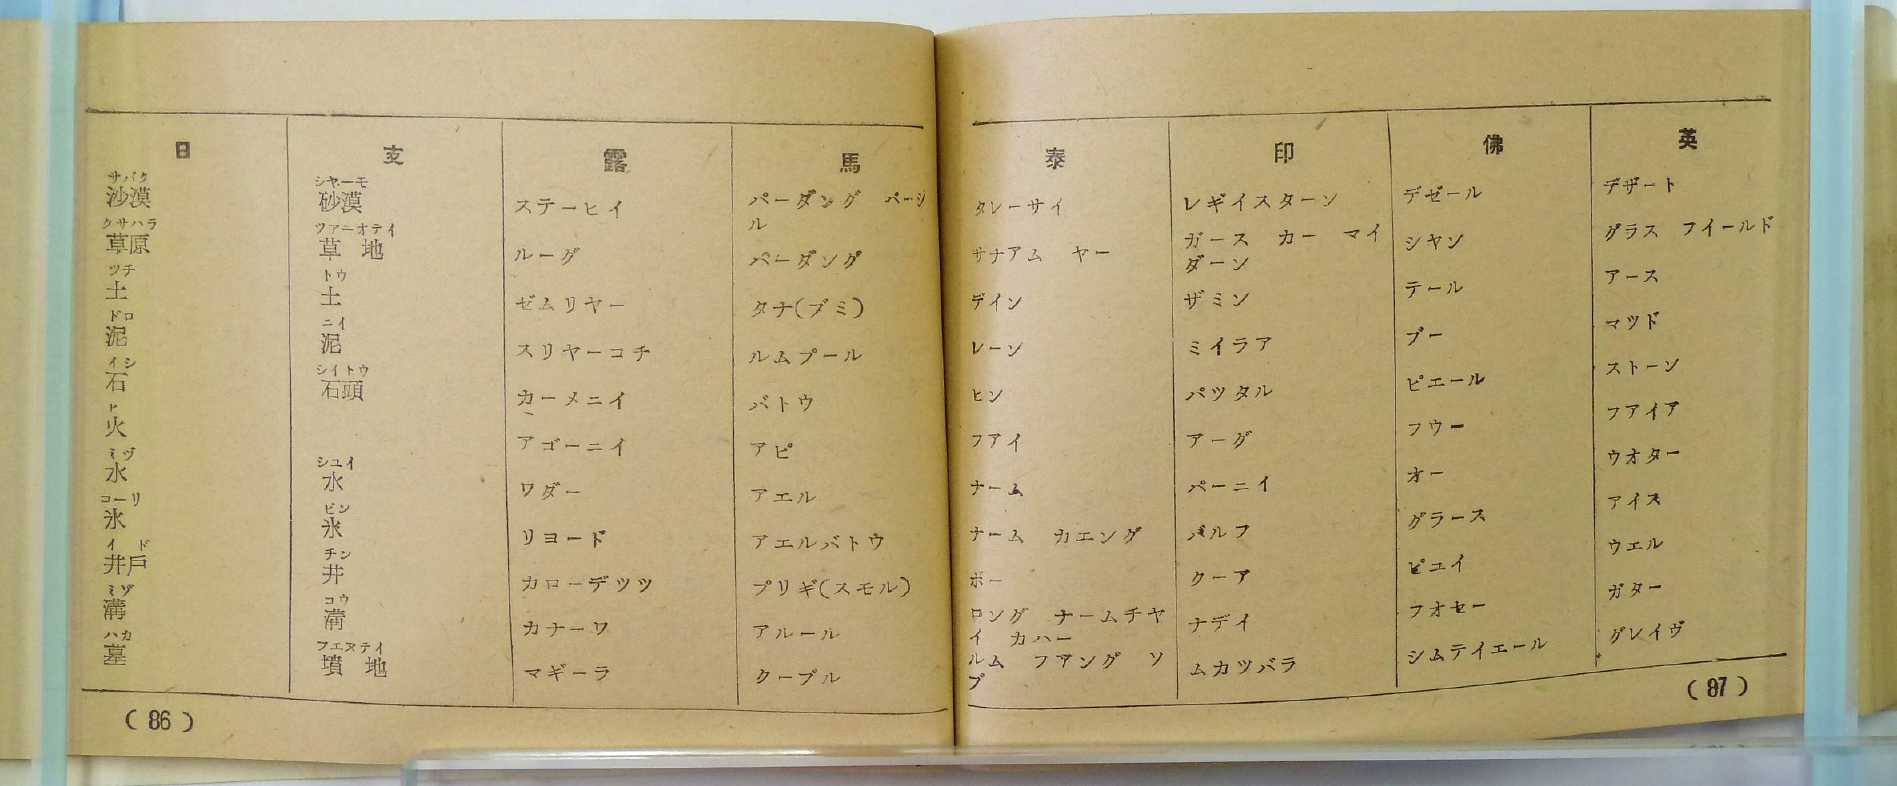 日
サバク
沙漠
クサハラ
草原
ツチ
土
ドロ
泥
イシ
石
ヒ
火
ミヅ
水
コーリ
氷
イド
井戸
ミゾ
溝
ハカ
墓
支
シヤーモ
砂漠
ツアーオテイ
草 地
トウ
土
ニイ
泥
シイトウ
石頭
シユイ
水
ビン
氷
チン
井
コウ
溝
フエヌテイ
墳 地
露
ステーヒイ
ルーグ
ゼムリヤー
スリヤーコチ
カーメニイ
アゴーニイ
ワダー
リヨード
カローデツツ
カナーワ
マギーラ
馬
パーダング パーシ
ル
パーダング
タナ(ブミ)
ルムプール
バトウ
アピ
アエル
アエルバトウ
プリギ(スモル)
アルール
クーブル
(86)
泰
タレーサイ
サナアム ヤー
デイン
レーン
ヒン
フアイ
ナーム
ナーム カエング
ボー
ロング ナームチヤ
イ カハー
ルム フアング ソ
プ
印
レギイスターン
ガース カー マイ
ダーン
ザミン
ミイラア
パツタル
アーグ
パーニイ
バルフ
クーア
ナデイ
ムカツバラ
佛
デゼール
シヤン
テール
ブー
ピエール
フウー
オー
グラース
ピユイ
フオセー
シムテイエール
英
デザート
グラス フイールド
アース
マツド
ストーン
フアイア
ウオター
アイス
ウエル
ガター
グレイヴ
(87)